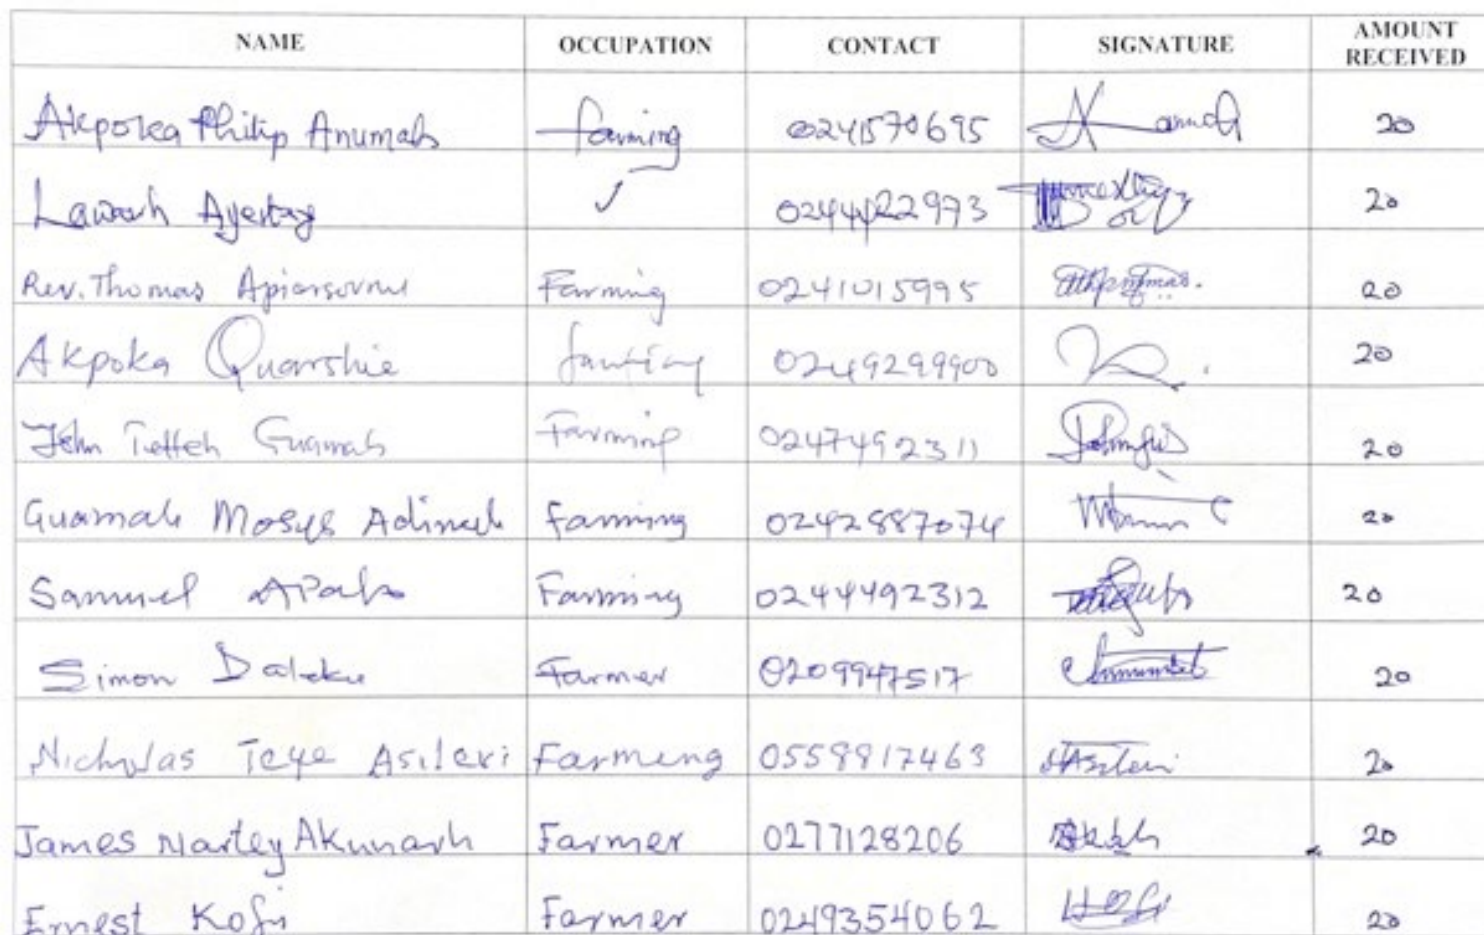 NAME OCCUPATION CONTACT SIGNATURE AMOUNT RECEIVED
Akpoka Philip Anumah farming 0241570695 20
Lawarh Ayertey ✓ 0244122973 20
Rev. Thomas Farming 0241015995 20
Akpoka Quarshie farming 0249299900 20
John Tetteh Guamah Farming 0247492311 20
Guamah Moses Adinah farming 0242887074 20
Samuel APah Farming 0244492312 20
Simon Farmer 0209947517 20
Nicholas Teye Asileri Farmeng 0559917463 20
James Nartey Akunarh Farmer 0277128206 20
Ernest Kofi Farmer 0249354062 20